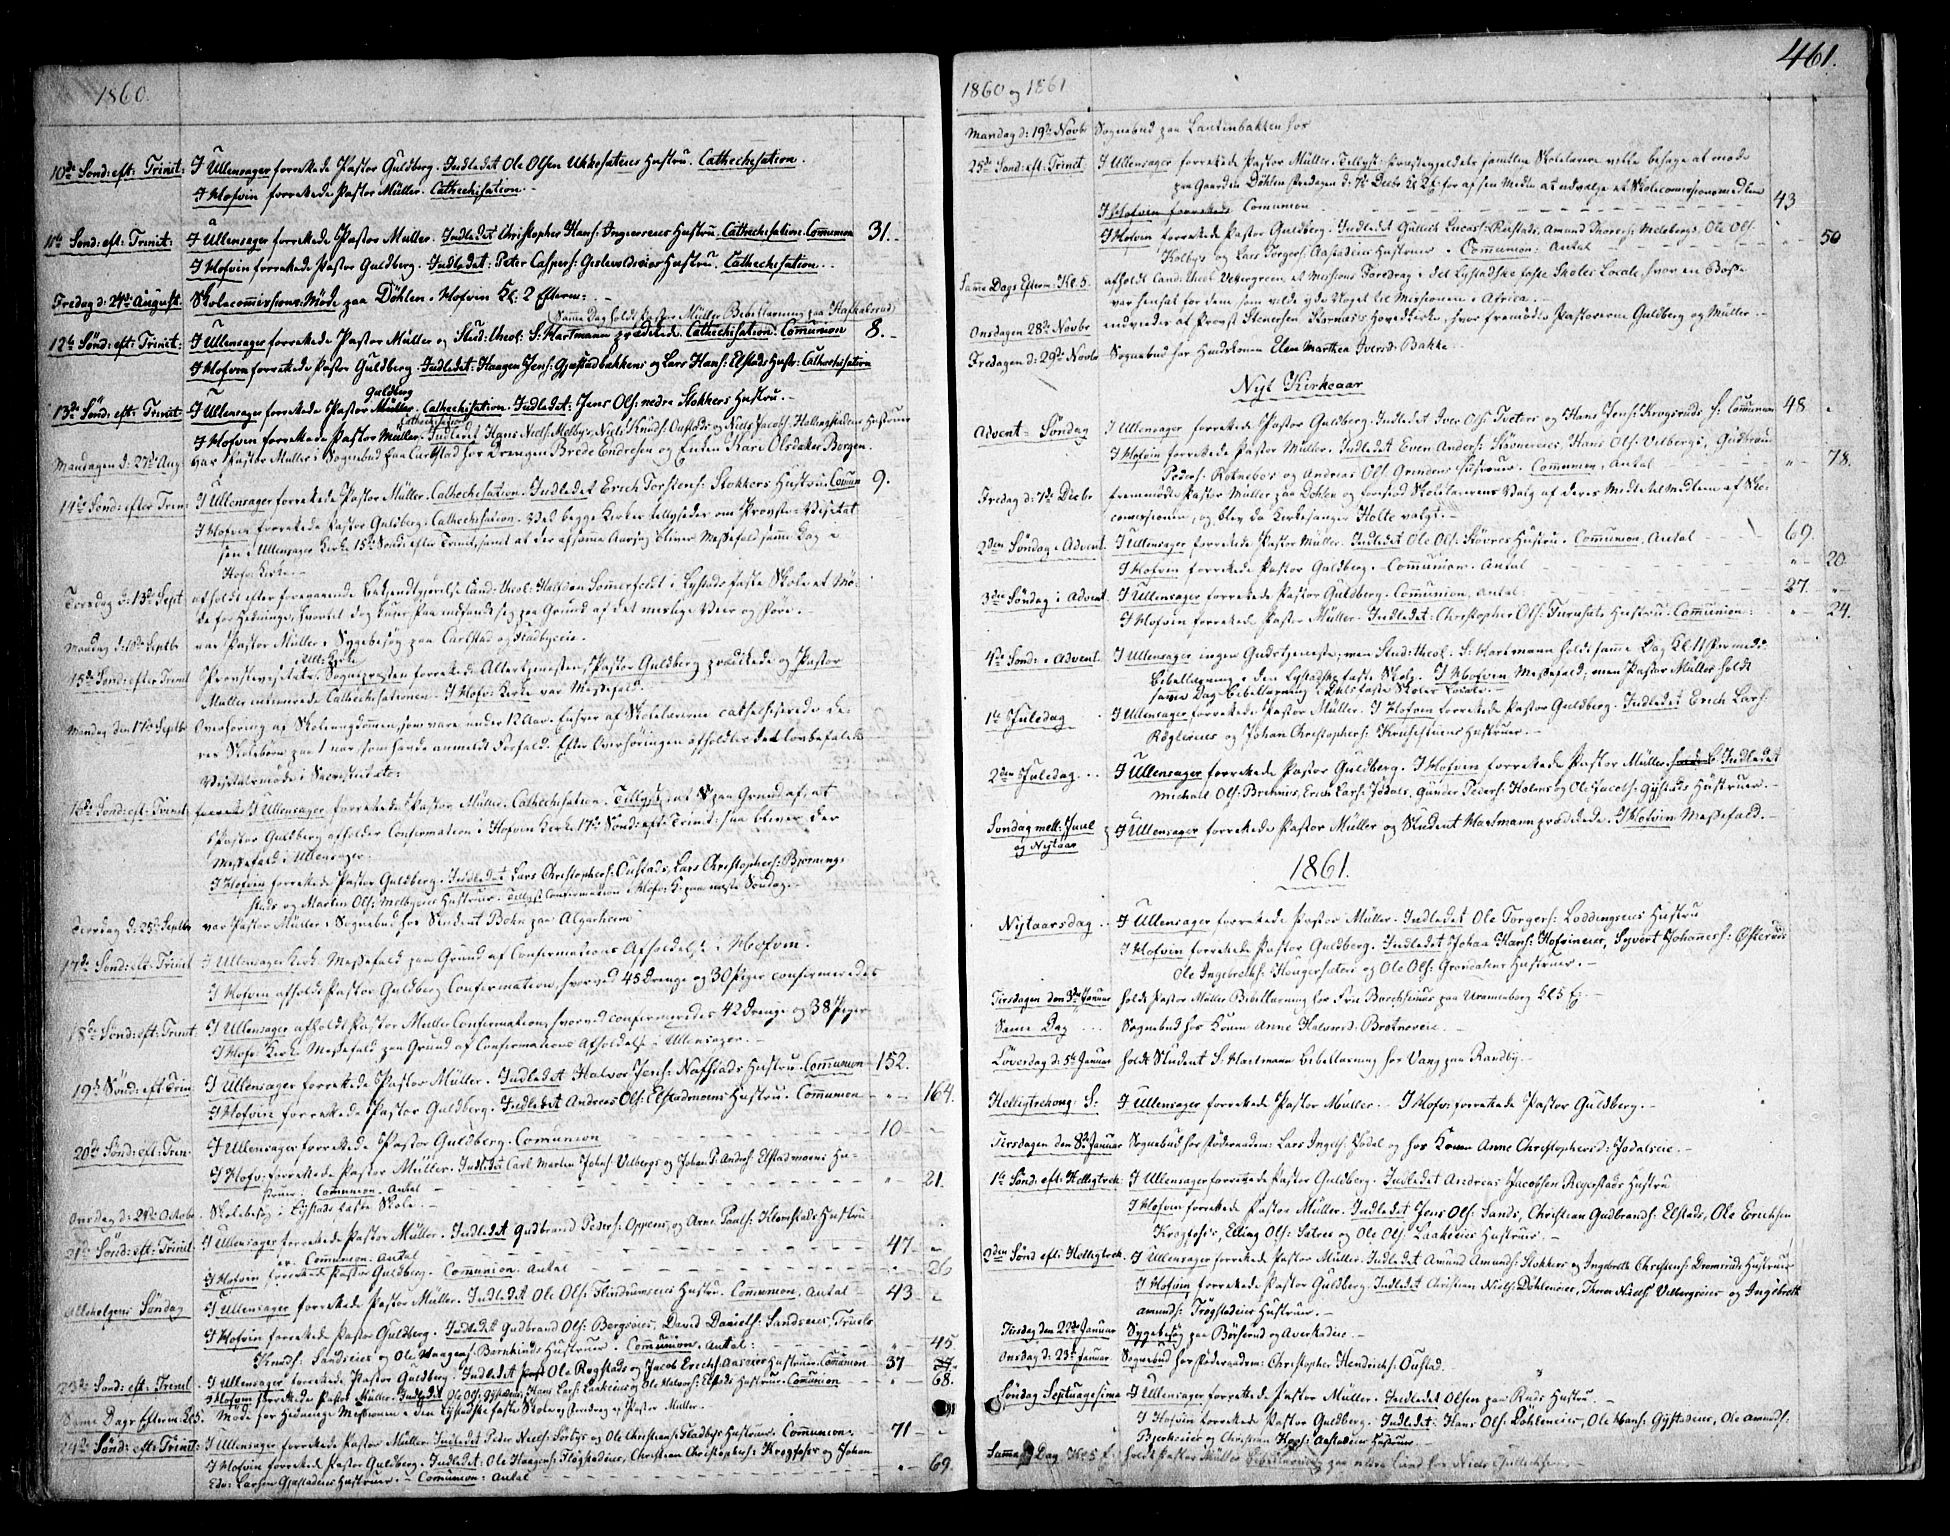 1860.
10de Sønd: eft: Trinit: I Ullensager forrettede Pastor Guldberg. Indledet Ole Olsen Ukkestaeies Hustru. Cathechisation.
I Hofvin forrettede Pastor Müller. Cathechisation.
11te Sønd: eft: Trinit: I Ullensager forrettede Pastor Müller. Indledet Christopher Hans: Hustru. Cathechisation. Communion 31.
I Hofvin forrettede Pastor Guldberg. Indledet: Peter Caspers: Hustru. Cathechisation.
Fredag d: 24de August. Skolecommissions-Møde paa Døhlen i Hofvin Kl: 2 Efterm:
Samme Dag holdt Pastor Müller Bibellæsning paa
12te Sønd: eft: Trinit: I Ullensager forrettede Pastor Müller og Stud: theol: S: Hartmann prædikede. Cathechisation. Comunion 8.
I Hofvin forrettede Pastor Guldberg. Indledet: Haagen Jens: Gjæstadbakkens og Lars Hans: Elstads Hustr: Cathechisation
Guldberg
13de Sønd: eft: Trinit: I Ullensager forrettede Pastor Müller. Cathechisation. Indledet: Jens Ols: nedre Stokkers Hustru.
Cathechisation
I Hofvin forrettede Pastor Müller. Indledet Hans Niels: Melbys, Niels Knuds: Oustads og Niels Jacobs: Hallingstadeies Hustruer
Mandagen d: 27de Aug. Har Pastor Müller i Sognebud paa Carlstad hos Drengen Brede Endresen og Enken Kari Olsdatter Borgen.
14de Sønd: efter Trin: I Ullensager forrettede Pastor Müller. Cathechisation. Indledet Erich Torstens: Stokkers Hustru. Comun 9.
I Hofvin forrettede Pastor Guldberg. Cathechisation. Ved begge Kirker tillyses der om Provste-Visitat
sen i Ullensager Kirke 15de Sønd: efter Trinit, samt at der af samme Aarsag bliver Messefald samme Dag i
Hofv: Kirke.
Torsdag d: 13de Sept. afholdt efter foregaaende Bekjendtgjørelse Cand: theol: Halvdan Sommerfeldt i Lystads faste Skole et Mø-
de for Hedninge
Mandag d: 10de Septbr var Pastor Müller i Sygebesøg paa Carlstad og Fladbyeie.
Ull: Kirke
15de Sønd: efter Trinit Provstevisitats. Sognepræsten forrettede Altertjenesten, Pastor Guldberg prædikede og Pastor
Müller intimerede Cathechisationen. I Hofv: Kirke var Messefald.
Mandag den 17de Septbr Overhøring af Skoleungdommen, som vare under 12 Aar. Enhver af Skolelærerne cathechiserede de-
res Skolebørn
Visitatsmøde i Sacrestiet.
16de Sønd: eft: Trinit I Ullensager forrettede Pastor Müller. Cathechisation. Tillyst, at paa Grund af at
Pastor Guldberg afholder Confirmation i Hofvin Kirke 17de Sønd: eft: Trinit: saa bliver der
Messefald i Ullensager.
I Hofvin forrettede Pastor Guldberg. Indledet Lars Christophers: Oustads, Lars Christophers: Bjørning-
stads og Martin Ols: Melbyeies Hustruer. Tillyst Confirmation i Hofv: K: paa næste Søndag.
Tirsdag d: 25de Septbr var Pastor Müller i Sognebud hos Student Bohn paa Algarheim
17de Sønd: eft: Trinit I Ullensager Kirke Messefald paa Grund af Confirmations Afholdelse i Hofvin.
I Hofvin afholdt Pastor Guldberg Confirmation, hvorved 45 Drenge og 30 Piger confirmeredes
18de Sønd: eft: Trinit. I Ullensager afholdt Pastor Müller Confirmation, hvorved confirmeredes 42 Drenge og 38 Piger
I Hofv: Kirke Messefald paa Grund af Confirmations Afholdelse i Ullensager.
19de Sønd: eft: Trin: I Ullensager forrettede Pastor Müller. Indledet Halvor Jens: Nafstads Hustru. Communion 152.
I Hofvin forrettede Pastor Guldberg. Indledet Andreas Ols: Elstadmoens Hustru. Communion 164.
20de Sønd: eft: Trin: I Ullensager forrettede Pastor Guldberg. Comunion 10
I Hofv: forrettede Pastor Müller. Indledet Carl Marten Johns: Velbergs og Johan P: Anders: Elstadmoens Hu-
struer. Comunion. Antal 21.
Onsdag d: 24de Octobr. Skolebesøg i Lystads faste Skole.
21de Sønd: eft: Trinit: I Ullensager forrettede Pastor Müller. Indledet Gudbrand Peders: Oppens, og Arne Pauls: Klomstads Hustru-
er. Commun. Antal 47
I Hofvin forrettede Pastor Guldberg. Comunion. Antal 26
Allehelgens Søndag I Ullensager forrettede Pastor Müller. Indledet Ole Ols: Hustru. Comunion, Antal 43
I Hofvin forrettede Pastor Guldberg. Indledet Gudbrand Ols: Bergseies, David Daniels: Sandseies, Truels
Knuds: Sandseies og Ole Haagens: Bornkinds Hustruer. Communion. Antal: 45
23de Sønd: eft: Trinit I Ullensager forrettede Pastor Guldberg. Indledet Ole Rogstads og Jacob Erichs: Aaseies Hustruer. Comunion 37
I Hofvin forrettede Pastor Müller. Indledet Ole Ols: Gystadeies, Hans Lars: Laakeies og Ole Halvors: Elstads Hustruer. Comunion 68.
Samme Dags Efterm: Kl 5. Møde for Hedninge Missionen i den Lystadske faste Skole og Foredrag af Pastor Müller.
24de Sønd: eft: Trinit: I Ullensager forrettede Pastor Müller. Indledet Peder Niels: Sørbys og Ole Christens: Fladbys Hustruer. Communion. 71
I Hofvin forrettede Pastor Guldberg. Indledet: Ole Haagens: Flogstadeies, Christian Christophs: Krogfosses og Johan
Edv: Larsen Gjestadeies Hustruer. Comunion: Antal 69.
461.
1860 og 1861
Mandag d: 19de Novbr Sognebud paa Lautinbakken hos
25de Sønd: eft: Trinit. I Ullensager forrettede Pastor Müller. Tillyst: Præstegjeldets samtlige Skolelærere ville behage at møde
paa Gaarden Døhlen Fredagen d: 7de Decbr Kl 2 E: for af sin Medte at udvælge et Skolecomissionsmedlem
I Hofvin forrettede Comunion 43
I Hofvin forrettede Pastor Guldberg. Indledet Gullich Lucas: Røistads, Amund Thores: Melebergs, Ole Ols:
Kolbys og Lars Torgers: Aastadeies Hustruer. Communion: Antal 50
Samme Dags Efterm: Kl. 5. afholdt Cand: theol: Vettergreen et Missions Foredrag i det Lystadske faste Skoles Locale, hvor en Bøsse
var hensat for dem som vilde yde Noget til Missionen i Africa.
Onsdagen 28de Novbr indviedes af Provst Stenersen Kirkes Hovedkirke, hvor fremmødte Pastorerne Guldberg og Müller.
Fredagen d: 29de Novbr Sognebud hos Huuskonen Elen Marthea Iversd: Bakke.
Nyt Kirkeaar
Advent-Søndag I Ullensager forrettede Pastor Guldberg. Indledet Iver Ols: Tveters og Hans Jens: Krogsruds H: Comunion 48
I Hofvin forrettede Pastor Müller. Indledet Even Anders: Hans Ols: Velbergs, Gudbrand
Peders: Rotnebøs og Andreas Ols: Hustruer. Communion, Antal 78.
Fredag d: 7de Decbr fremmødte Pastor Müller paa Døhlen og forestod Skolelærernes Valg af deres Medlem af Sko-
comissionen, og blev da Kirkesanger Holte valgt.
2den Søndag i Advent. I Ullensager forrettede Pastor Müller. Indledet Ole Ols: Hustru. Communion, Antal 69.
I Hofvin forrettede Pastor Guldberg. Communion. Antal 20
3die Søndag i Advent I Ullensager forrettede Pastor Guldberg. Comunion, Antal 27.
I Hofvin forrettede Pastor Müller. Indledet: Christopher Ols: Hustru. Communion: 24.
4de Sønd: i Advent I Ullensager ingen Gudstjeneste; men Stud: theol: S. Hartmann holdt samme Dag Kl 11 Formidd:
Bibellæsning i den Lystadske faste Skole. I Hofvin Messefald; men Pastor Müller holdt
samme Dag Bibellæsning i faste Skoles Locale.
1te Juledag I Ullensager forrettede Pastor Müller. I Hofvin forrettede Pastor Guldberg. Indledet Erich Lars:
Røgleeies og Johan Christophers: Hustruer.
2den Juledag I Ullensager forrettede Pastor Guldberg. I Hofvin forrettede Pastor Müller. Indledet
Michael Ols: Erich Lars: Jødals, Gunder Peders: Holms og Ole Jacobs: Gystads Hustruer.
Søndag mell: Juul og Nytaar I Ullensager forrettede Pastor Müller og Student Hartmann prædikede. I Hofvin Messefald.
1861.
Nytaarsdag I Ullensager forrettede Pastor Müller. Indledet Ole Torgers: Loddingseies Hustru
I Hofvin forrettede Pastor Guldberg. Indledet Johan Hans: Hofvineies, Syvert Johannes: Østeruds
Ole Ingebreths: Haugersæters og Ole Ols: Hustruer.
Tirsdagen den 3de Januar holdt Pastor Müller Bibellæsning hos Fru paa Uranienborg Kl 5 E:
Samme Dag Sognebud hos Konen Anne Halvorsd: Brotneeie.
Løverdag d: 5te Januar holdt Student S: Hartmann Bibellæsning hos Vang paa Randby.
Helligtrekong: S: I Ullensager forrettede Pastor Müller. I Hofv: forrettede Pastor Guldberg.
Tirsdagen den 8de Januar Sognebud hos Føderaadsm: Lars Ingels: Hodal og hos Konen Anne Christophersd: Jødalseie.
1te Sønd: eft: Helligtrek: I Ullensager forrettede Pastor Guldberg. Indledet Andreas Jacobsen Hustru
I Hofvin forrettede Pastor Müller. Indledet Jens Ols: Sands, Christian Gudbrands: Elstads, Ole Erichsen
Krogfoss, Elling Ols: Sætres og Ole Ols: Laakeeies Hustruer.
2den Sønd eft: Helligtrek. I Ullensager forrettede Pastor Müller. Indledet Amund Amunds: Stokkers og Ingebreth Christens: Hustruer
I Hofvin forrettede Pastor Guldberg. Indledet Christian Niels: Døhleneies, Thorer Niels: Velbergseies og Ingebreth
Amunds: Trøgstadeies Hustruer.
Tirsdag den 22de Januar Sygebesøg paa Børserud og Averstadeie.
Onsdag d: 23de Januar Sognebud hos Føderaadsm: Christopher Hendrichs: Oustad.
Søndag Septuagesima I Ullensager forrettede Pastor Müller. Indledet Olsen paa Ruds Hustru
I Hofvin forrettede Pastor Guldberg. Indledet: Hans Ols: Døhleneies, Ole Hans: Gystadeies, Ole Amunds:
Bjerkeeies og Christian Aastadeies Hustruer.
Samme Dag Kl 5 E: holdt Pastor Müller Bibellæsning paa nedre Lund hos Niels Gullichsen.